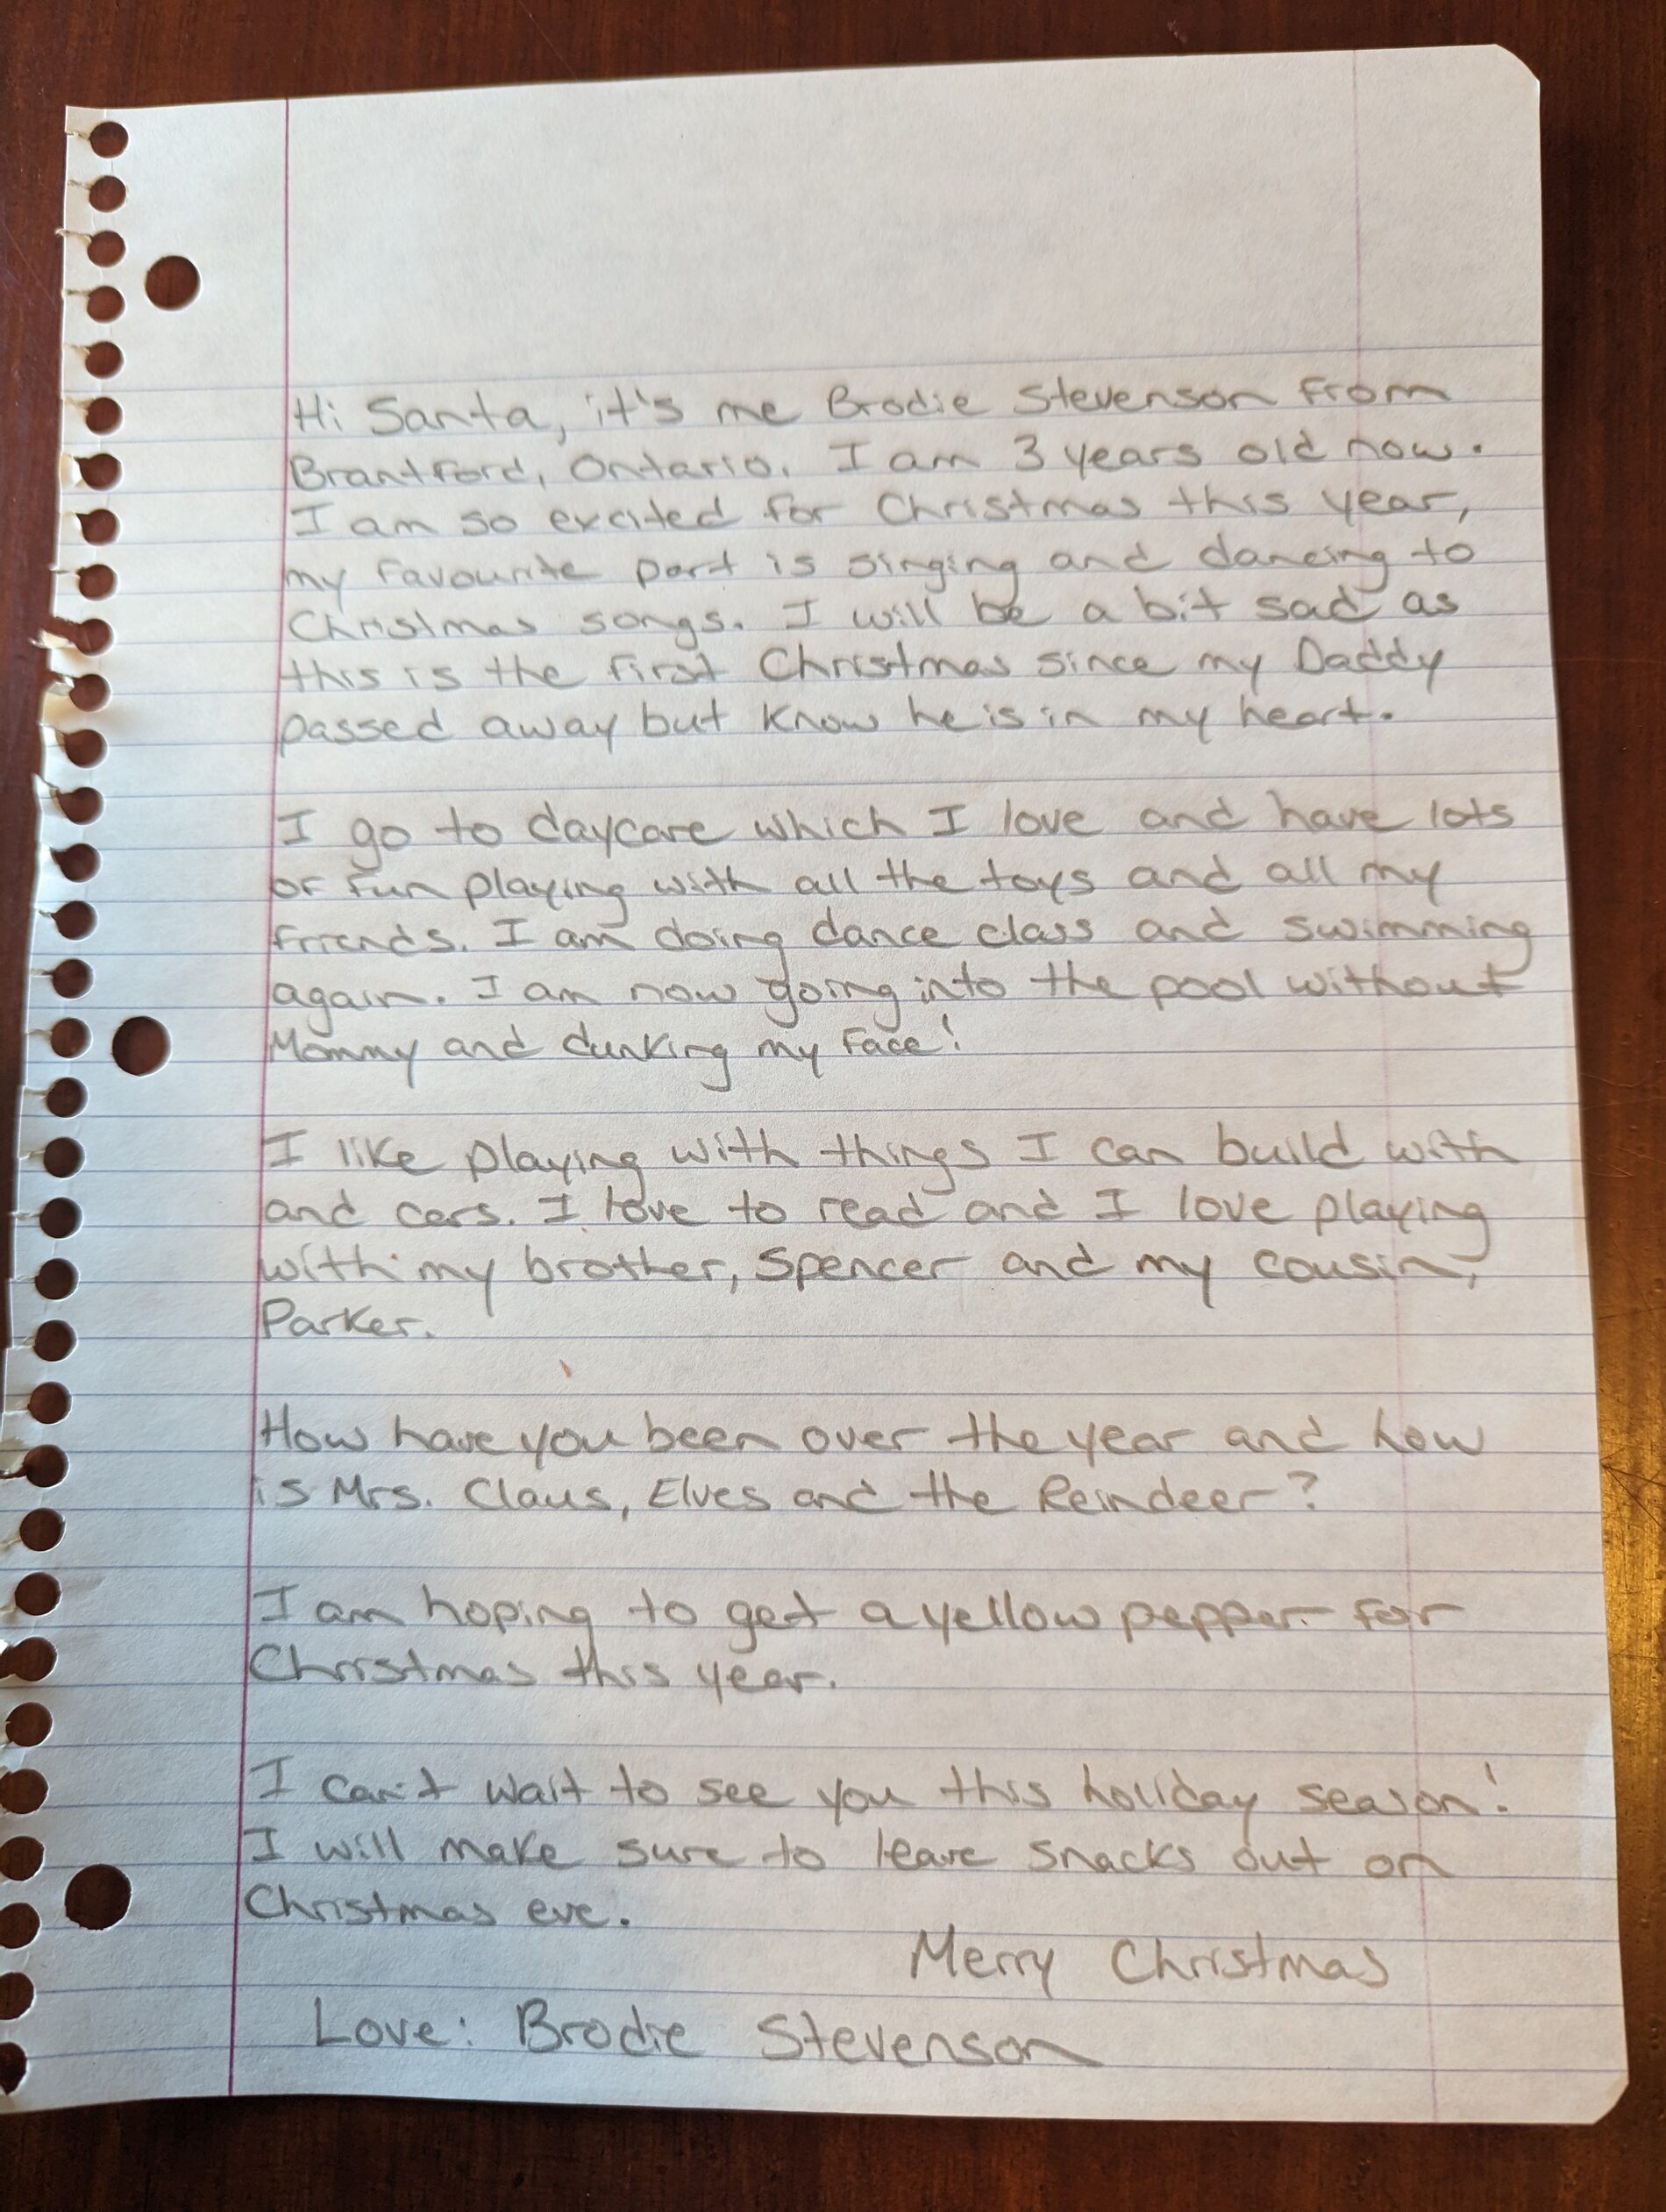 Hi Santa, it's me Brodie Stevenson from
Brantford, Ontario. I am 3 years old now.
I am so excited for Christmas this year,
my favourite part is singing and dancing to
Christmas songs. I will be a bit sad as
this is the first Christmas since my Daddy
passed away but know he is in my heart.
I go to daycare which I love and have lots
of fun playing with all the toys and all my
friends. I am doing dance class and swimming
again. I am now going into the pool without
Mommy and dunking my face!
I like playing with things I can build with
and cars. I love to read and I love playing
with my brother, Spencer and my cousin,
Parker.
How have you been over the year and how
is Mrs. Claus, Elves and the Reindeer?
I am hoping to get a yellow pepper for
Christmas this year.
I can't wait to see you this holiday season!
I will make sure to leave snacks out on
Christmas eve.
Merry Christmas
Love: Brodie Stevenson